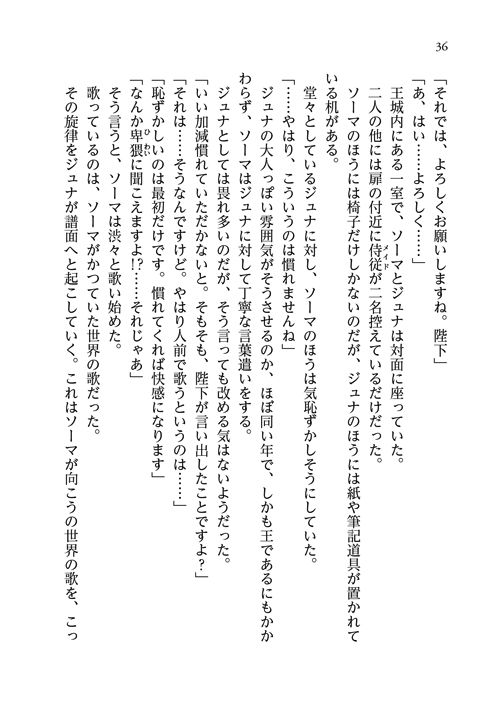 36
「それでは、よろしくお願いしますね。陛下」
「あ、はい……よろしく……」
王城内にある一室で、ソーマとジュナは対面に座っていた。
二人の他には扉の付近に侍従が二名控えているだけだった。
ソーマのほうには椅子だけしかないのだが、ジュナのほうには紙や筆記道具が置かれて
いる机がある。
堂々としているジュナに対し、ソーマのほうは気恥ずかしそうにしていた。
「……やはり、こういうのは慣れませんね」
ジュナの大人っぽい雰囲気がそうさせるのか、ほぼ同い年で、しかも王であるにもかか
わらず、ソーマはジュナに対して丁寧な言葉遣いをする。
ジュナとしては畏れ多いのだが、そう言っても改める気はないようだった。
「いい加減慣れていただかないと。そもそも、陛下が言い出したことですよ?」
「それは……そうなんですけど。やはり人前で歌うというのは……」
「恥ずかしいのは最初だけです。慣れてくれば快感になります」
「なんか卑猥に聞こえますよ!?……それじゃあ」
そう言うと、ソーマは渋々と歌い始めた。
歌っているのは、ソーマがかつていた世界の歌だった。
その旋律をジュナが譜面へと起こしていく。これはソーマが向こうの世界の歌を、こっ